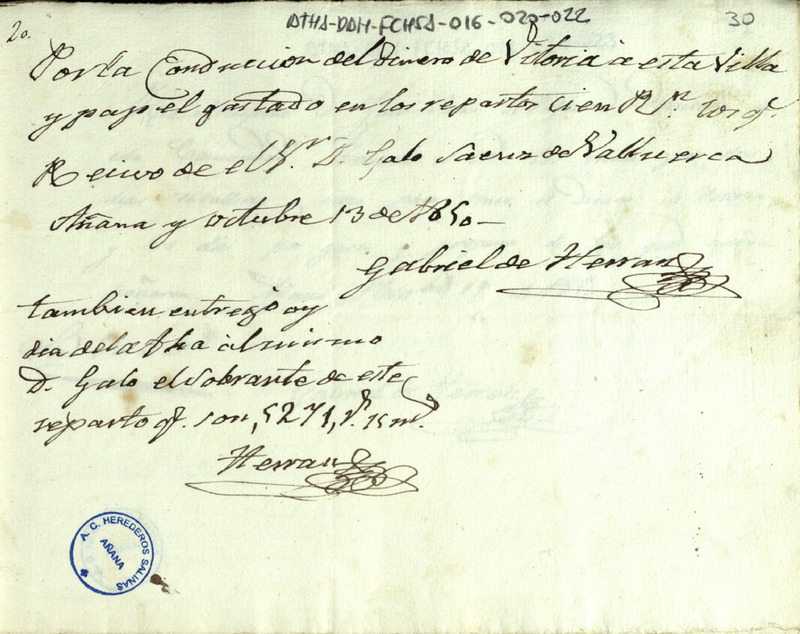 2o.
ATHA-DAH-FCHSA-016-020-022
30
Por la Conduccion del Dinero de Vitoria a esta Villa
y papel gastado en los repartos cien Rs. los q.
Recivo de el Sr. D. Galo Saenz de Valluerca
Añana y octubre 13 de 1850
Gabriel de Herran
tambien entrego oy
dia de la fha al mismo
D. Galo el sobrante de este
reparto q. son, 5271, rs. 15 ms.
Herran
A. C. HEREDEROS SALINAS
AÑANA